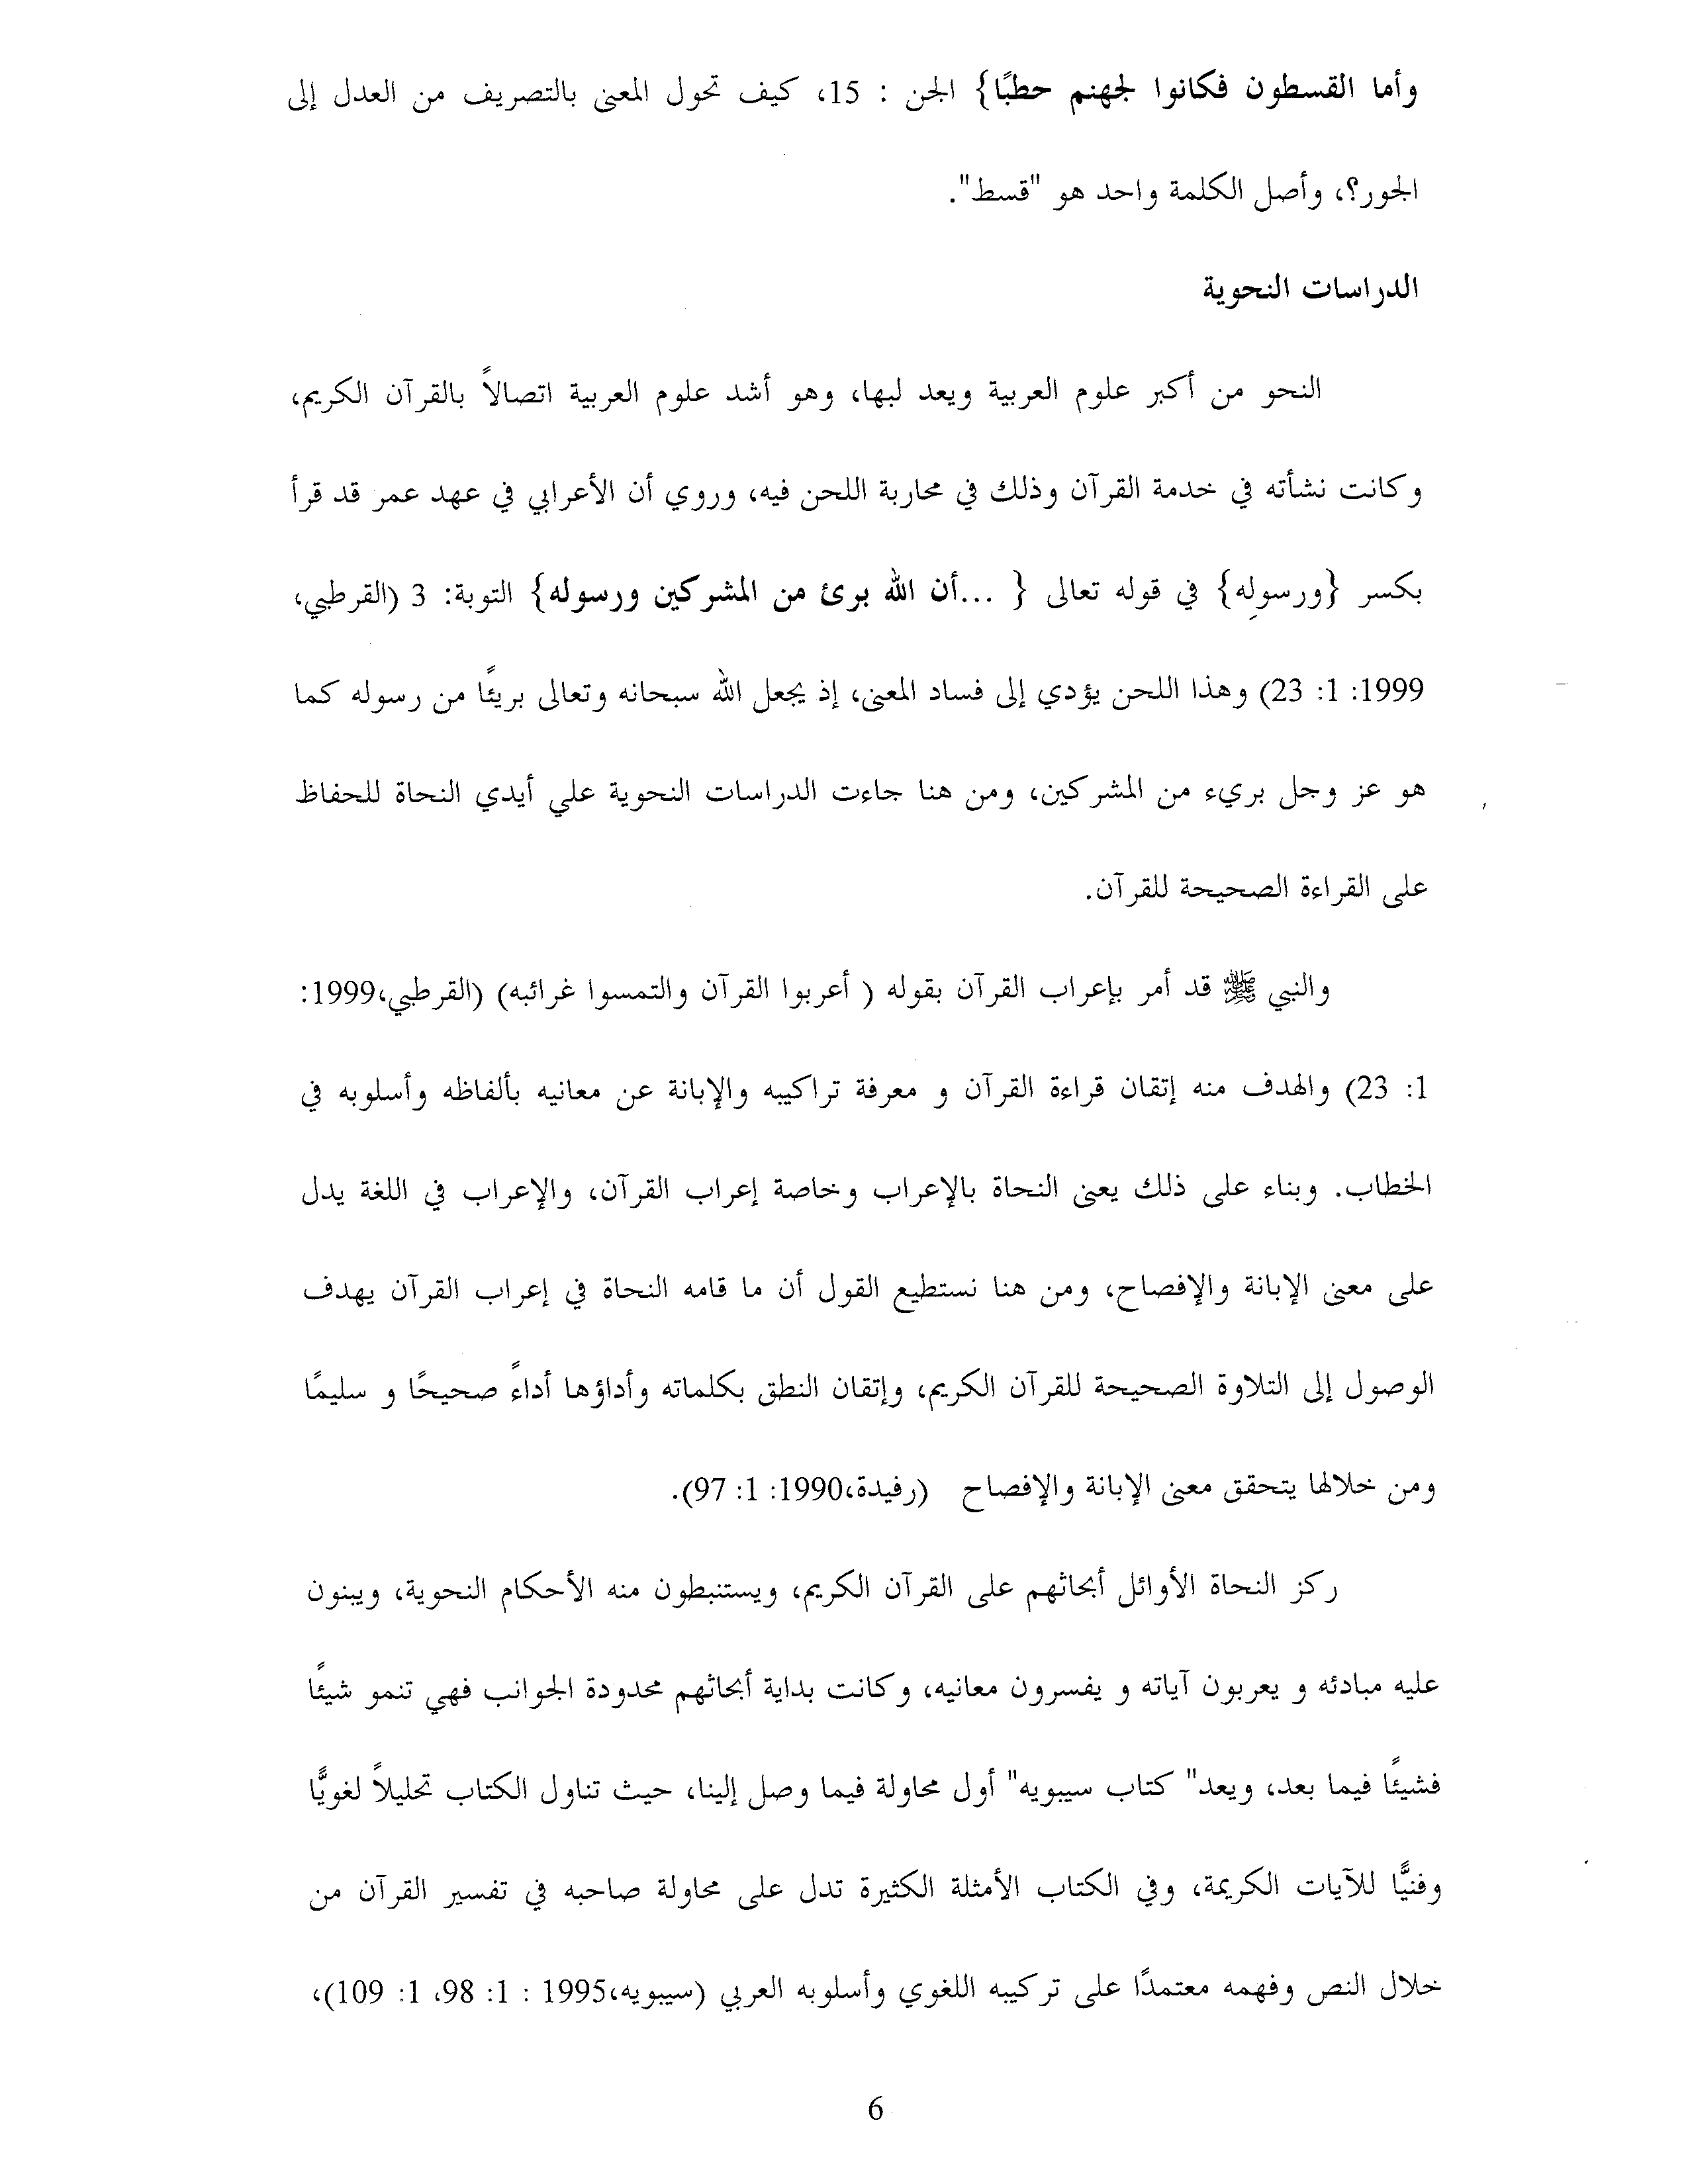 وأما القسطون فكانوا لجهنم حطبًا} الجن : 15، كيف تحول المعنى بالتصريف من العدل إلى
الجور؟، وأصل الكلمة واحد هو "قسط".
الدراسات النحوية
النحو من أكبر علوم العربية ويعد لبها، وهو أشد علوم العربية اتصالاً بالقرآن الكريم،
وكانت نشأته في خدمة القرآن وذلك في محاربة اللحن فيه، وروي أن الأعرابي في عهد عمر قد قرأ
بكسر {ورسولِه} في قوله تعالى { ...أن الله برئ من المشركين ورسوله} التوبة: 3 (القرطبي،
1999: 1: 23) وهذا اللحن يؤدي إلى فساد المعنى، إذ يجعل الله سبحانه وتعالى بريئًا من رسوله كما
هو عز وجل بريء من المشركين، ومن هنا جاءت الدراسات النحوية علي أيدي النحاة للحفاظ
على القراءة الصحيحة للقرآن.
والنبي ﷺ قد أمر بإعراب القرآن بقوله ( أعربوا القرآن والتمسوا غرائبه) (القرطبي،1999:
1: 23) والهدف منه إتقان قراءة القرآن و معرفة تراكيبه والإبانة عن معانيه بألفاظه وأسلوبه في
الخطاب. وبناء على ذلك يعنى النحاة بالإعراب وخاصة إعراب القرآن، والإعراب في اللغة يدل
على معنى الإبانة والإفصاح، ومن هنا نستطيع القول أن ما قامه النحاة في إعراب القرآن يهدف
الوصول إلى التلاوة الصحيحة للقرآن الكريم، وإتقان النطق بكلماته وأداؤها أداءً صحيحًا و سليمًا
ومن خلالها يتحقق معنى الإبانة والإفصاح (رفيدة،1990: 1: 97).
ركز النحاة الأوائل أبحاثهم على القرآن الكريم، ويستنبطون منه الأحكام النحوية، ويبنون
عليه مبادئه و يعربون آياته و يفسرون معانيه، وكانت بداية أبحاثهم محدودة الجوانب فهي تنمو شيئًا
فشيئًا فيما بعد، ويعد" كتاب سيبويه" أول محاولة فيما وصل إلينا، حيث تناول الكتاب تحليلاً لغويًّا
وفنيًّا للآيات الكريمة، وفي الكتاب الأمثلة الكثيرة تدل على محاولة صاحبه في تفسير القرآن من
خلال النص وفهمه معتمدًا على تركيبه اللغوي وأسلوبه العربي (سيبويه،1995 : 1: 98، 1: 109)،
6